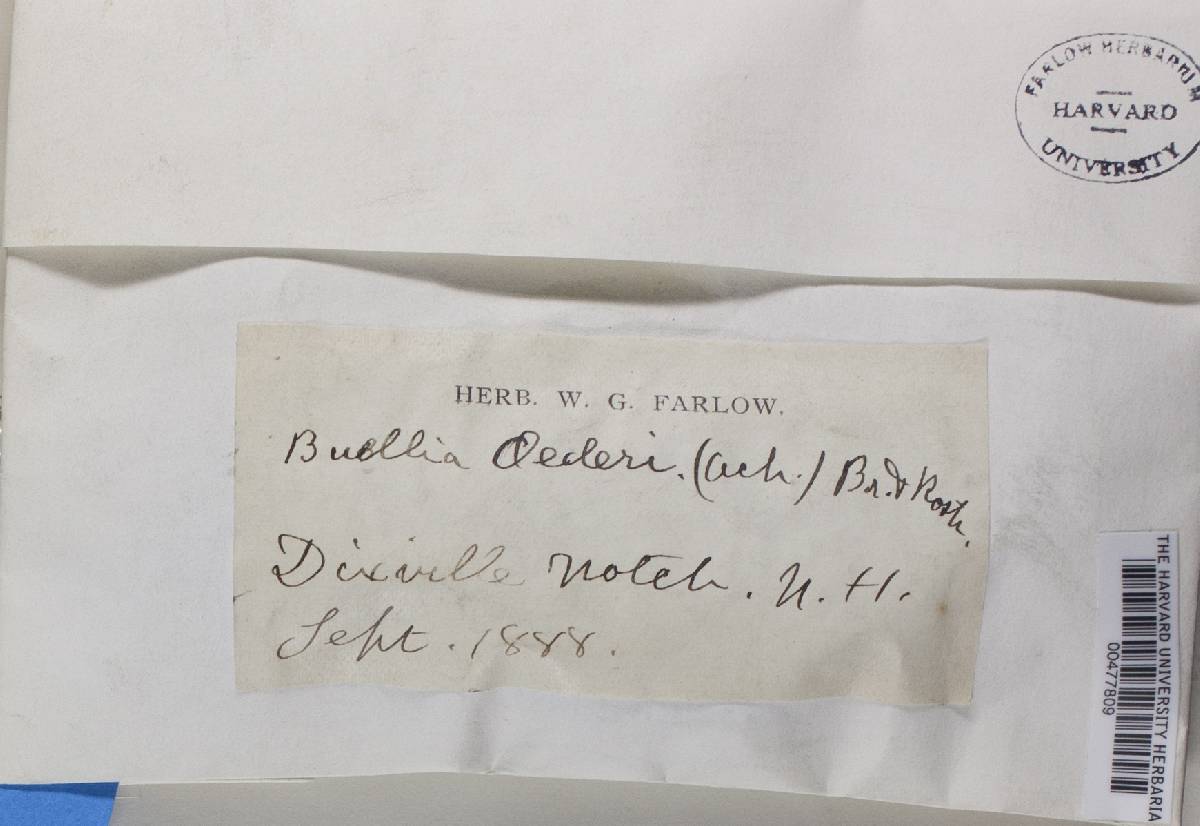 FARLOW HERBARIUM
HARVARD
UNIVERSITY
HERB. W. G. FARLOW.
Buellia Oederi. (Ach.) Br. & Rostr.
Dixville Notch. N. H.
Sept. 1888.
THE HARVARD UNIVERSITY HERBARIA
00477809